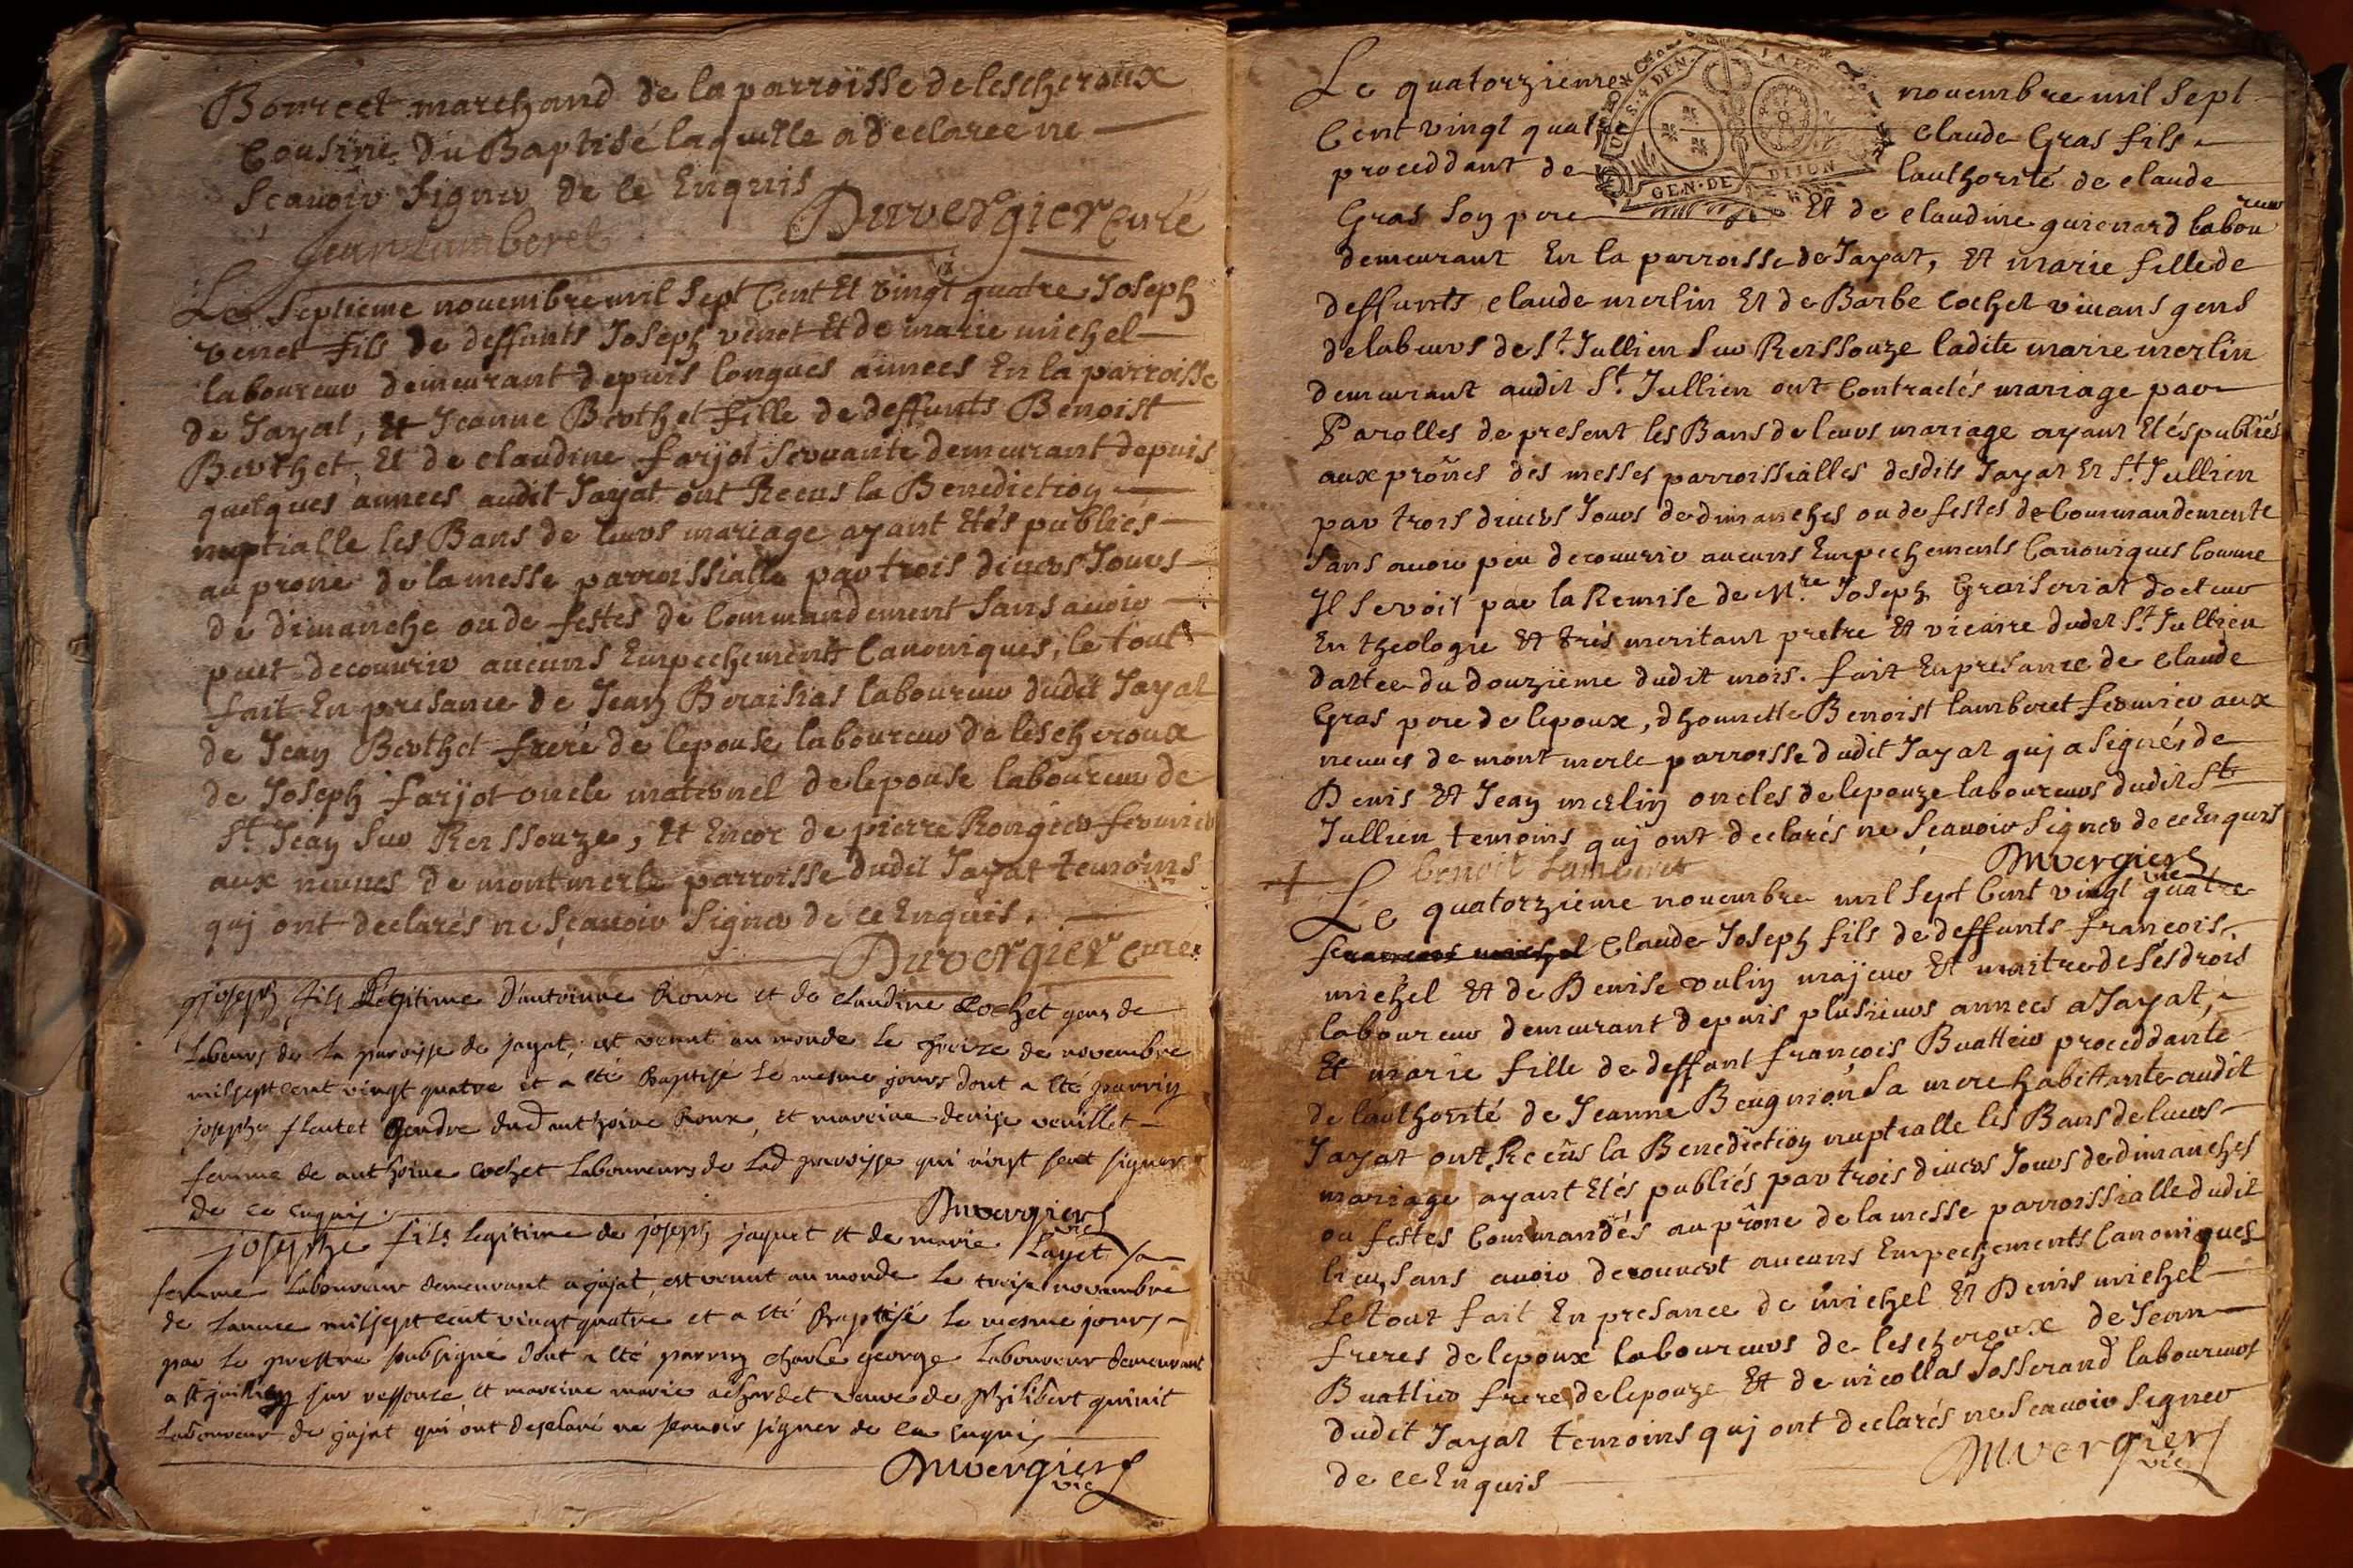 Bourcet marchand de la parroisse de lescheroux
Cousine du Baptisé laquelle a declaree ne
Scauoir Signer de ce Enquis
Jean lamberet Duvergier Curé
Le Septieme nouembre mil Sept Cent Et vingt quatre Joseph
venet fils de deffunts Joseph venet Et de marie michel
laboureur demeurant depuis longues annees En la parroisse
de Jayat, Et Jeanne Berthet fille de deffunts Benoist
Berthet, Et de claudine farjot Seruante demeurant depuis
quelques annees audit Jayat ont Receus la Benediction
nuptialle les Bans de leurs mariage ayant Etés publiés
au prone de la messe parroissialle par trois diuers Jours
de dimanche ou de festes de Commandement Sans auoir
peut decouurir aucuns Empechements Canoniques, le tout
fait En presance de Jean Beraisias laboureur dudit Jayat
de Jean Berthet frere de lepouse laboureur de lescheroux
de Joseph farjot oncle maternel de lepouse laboureur de
St. Jean Sur Reyssouze, Et Encor de pierre Rongier fermier
aux neuues de montmerle parroisse dudit Jayat temoins
quj ont declarés ne Scauoir Signer de ce Enquis.
Duvergier Curé
joseph fils Legitime D'antoinne Roux et de claudine Cochet gens de
Labeurs de La paroisse de jayat, est venut au monde Le treize de novembre
mil sept cent vingt quatre et a été Baptisé Le mesme jours dont a été parrin
josephe fleutet Gendre dud anthoine Roux, et mareine denise veuillet
femme de anthoine cochet Laboureurs de Lad paroisse qui n'ont seut signer
de ce enquis. Duvergier vic
josephe fils legitime de joseph jaquet et de marie Layet sa
femme Laboureur demeurant a jajat, est venut au monde Le treise novembre
de lannee mil sept cent vingt quatre et a été Baptisé Le mesme jours
par Le prestre soubsigné dont a été parrin charle george Laboureur demeurant
a st juillien sur ressouze et mareine marie achardet veuve de philibert guinit
Laboureur de jajat qui ont desclaré ne scauoir signer de ce enquis
Duvergier vic
Le quatorzieme nouembre mil Sept
Cent vingt quatre Claude Gras fils
proceddant de lauthorité de claude
Gras Son pere Et de claudine guienard laboureur
demeurant En la parroisse de Jayat, Et marie fille de
deffunts claude merlin Et de Barbe Cochet viuans gens
de labeurs de St. Jullien Sur Reyssouze ladite marie merlin
demeurant audit St. Jullien ont Contractés mariage par
Parolles de present les Bans de leurs mariage ayant Etés publiés
aux prônes des messes parroissialles desdits Jayat Et St. Jullien
par trois diuers Jours de dimanches ou de festes de Commandements
Sans auoir peu decouurir aucuns Empechements Canoniques Comme
Il Se voit par la Remise de Mre. Joseph Graiserriat docteur
En theologie Et très meritant pretre Et vicaire dudit St. Jullien
dattee du douzième dudit mois. fait En presance de claude
Gras pere de lepoux, dhonnette Benoist lamberet fermier aux
neuues de mont merle parroisse dudit Jayat quj a Signés de
Denis Et Jean merlin oncles de lepouze laboureurs dudit St
Jullien temoins quj ont declarés ne Scauoir Signer de ce Enquis
benoit Lamberet Duvergier vic
Le quatorzieme nouembre mil Sept Cent vingt quatre
francois michel Claude Joseph fils de deffunts françois
michel Et de Denise vulin majeur Et maitre de Ses drois
laboureur demeurant depuis plusieurs annees a Jayat,
Et marie fille de deffant françois Buattier proceddante
de lauthorité de Jeanne Beugnion Sa mere habittante audit
Jayat ont Receüs la Benediction nuptialle les Bans de leurs
mariage ayant Etés publiés par trois diuers Jours de dimanches
ou festes Commandés au prône de la messe parroissialle dudit
lieu, Sans auoir decouuert aucuns Empechements Canoniques
Le tout fait En presance de michel Et Denis michel
freres de lepoux laboureurs de lescheroux de Jean
Buattier frere de lepouze Et de nicollas Josserand laboureurs
dudit Jayat temoins quj ont declarés ne Scauoir Signer
de ce Enquis Duvergier vic
GEN. DE DIJON